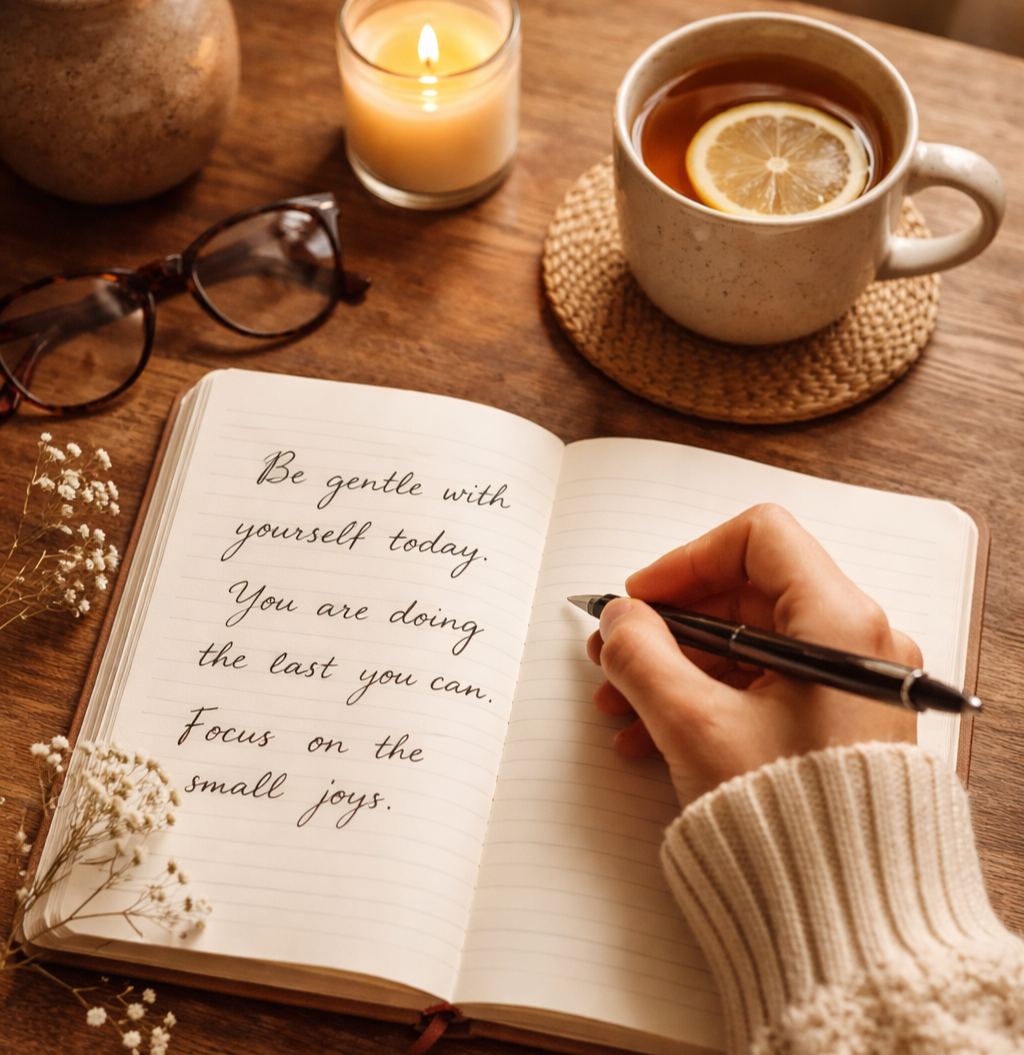 Be gentle with
yourself today.
You are doing
the last you can.
Focus on the
small joys.